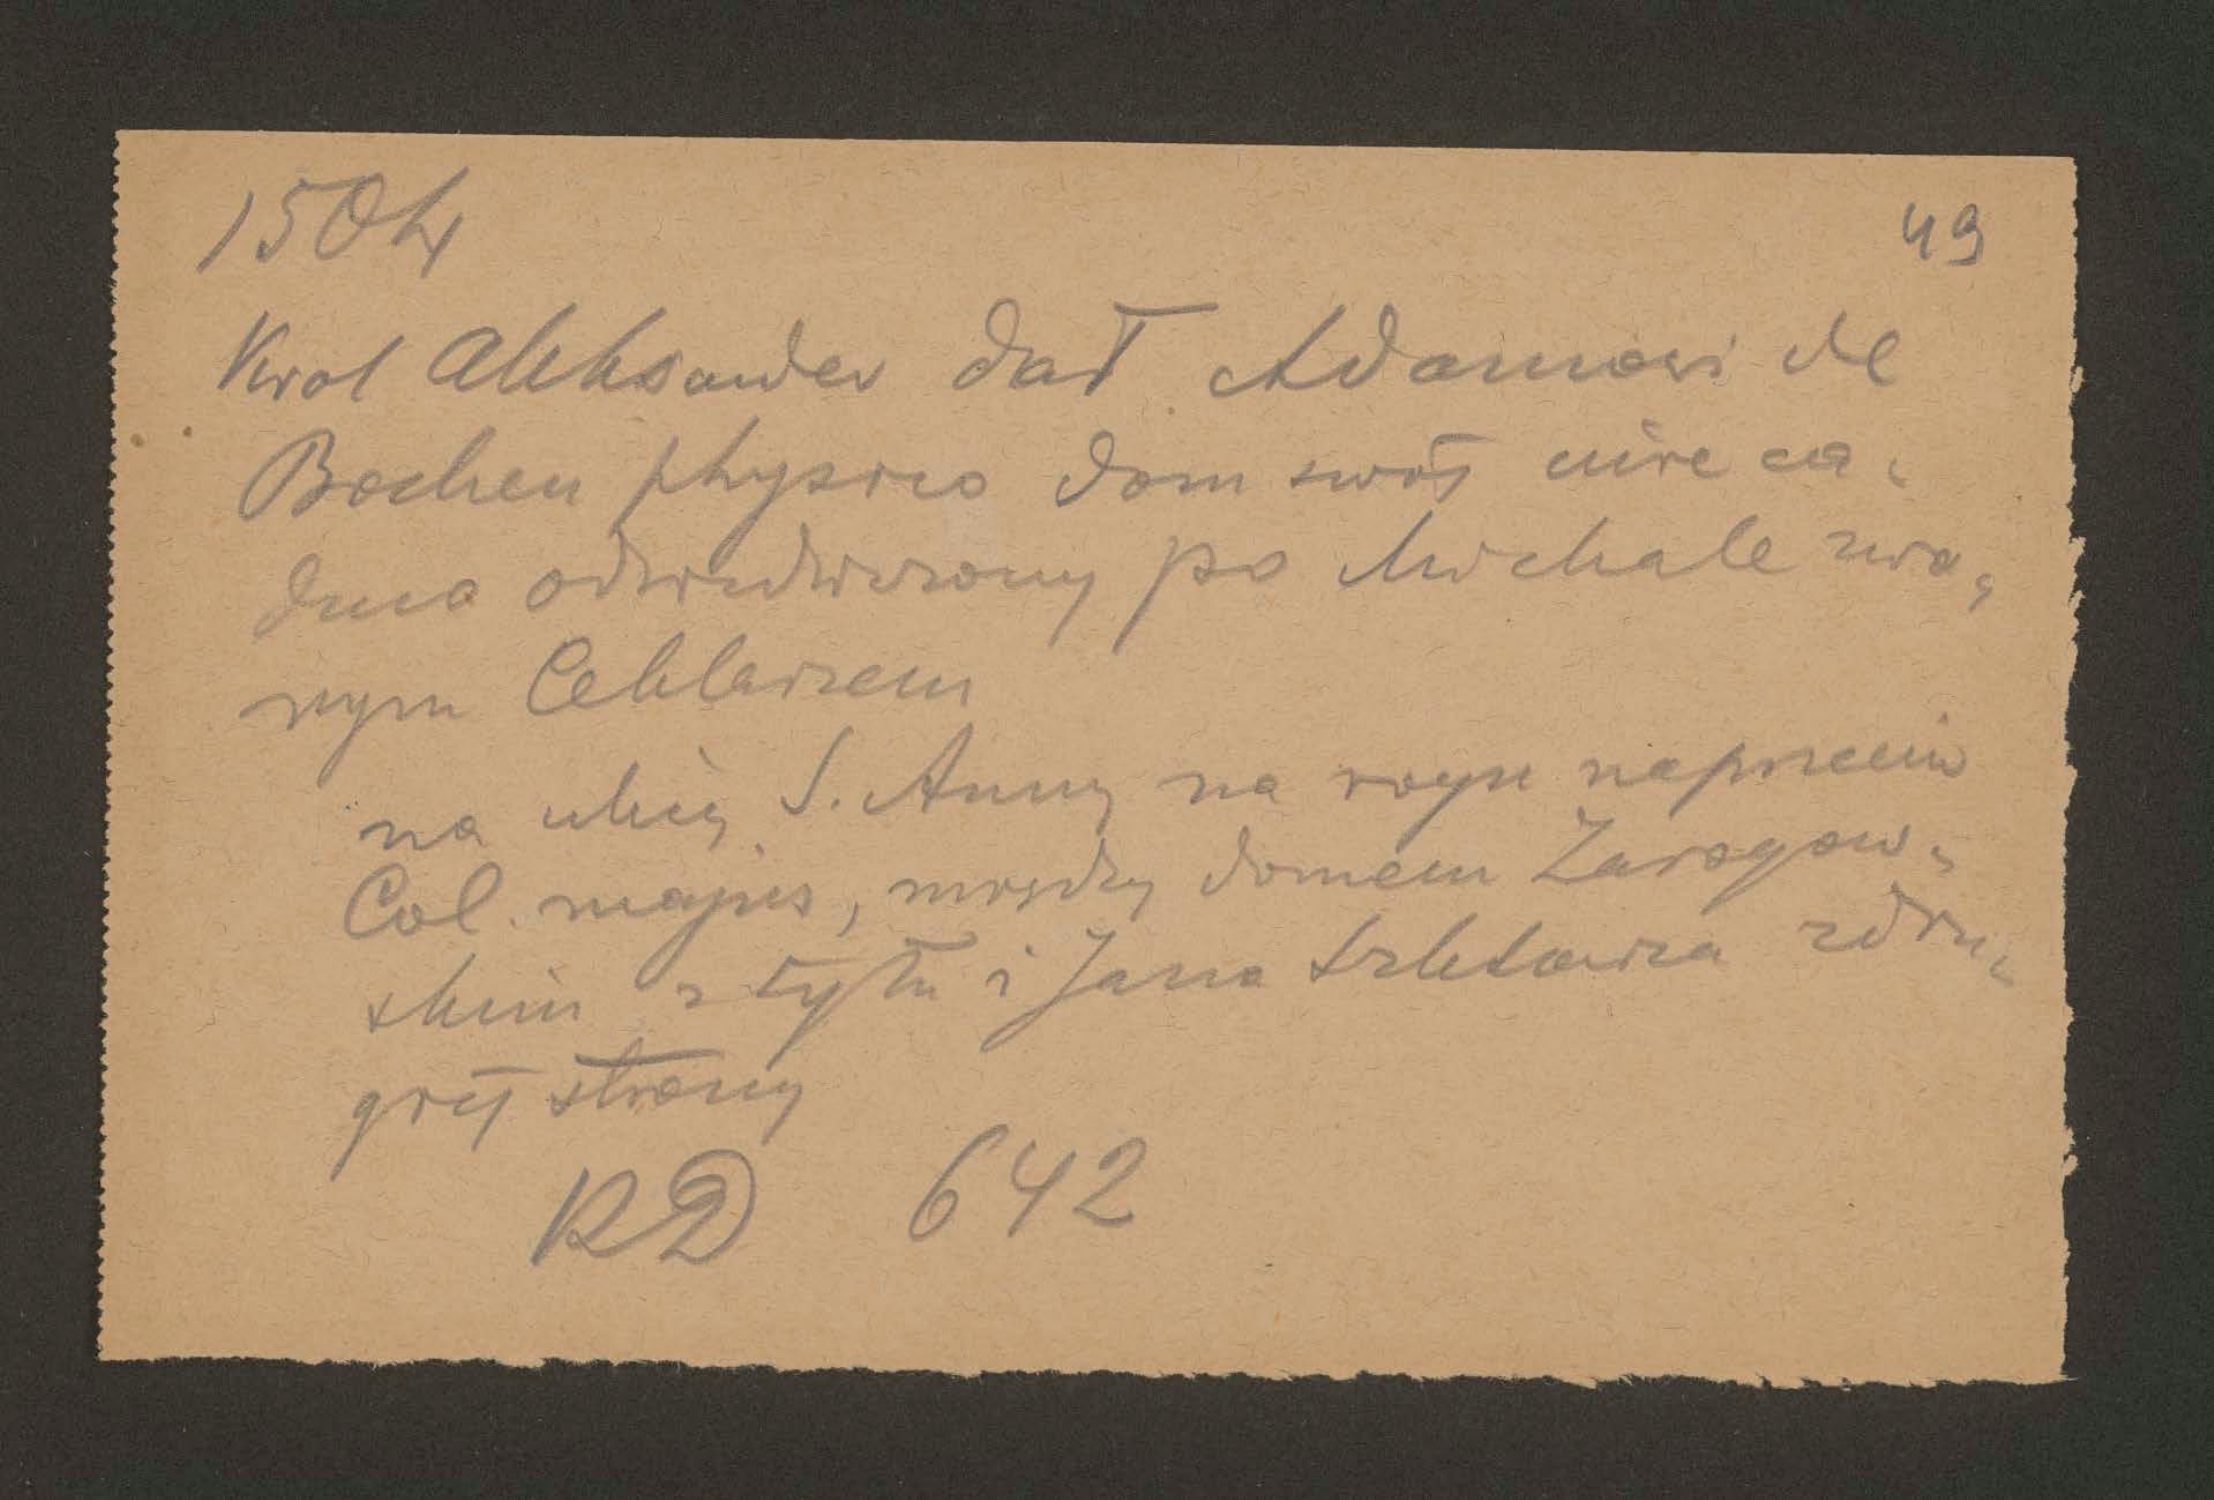 1504
49
Król Aleksander dał Adamowi de
Bochen physico dom swój iure ca-
duco odziedziczony po Michale zwa-
nym Ceklarzem
na ulicy S. Anny na rogu naprzeciw
Col. majus, między domem Żarogow-
skim z tyłu i Jana z dru-
giej strony
RD 642